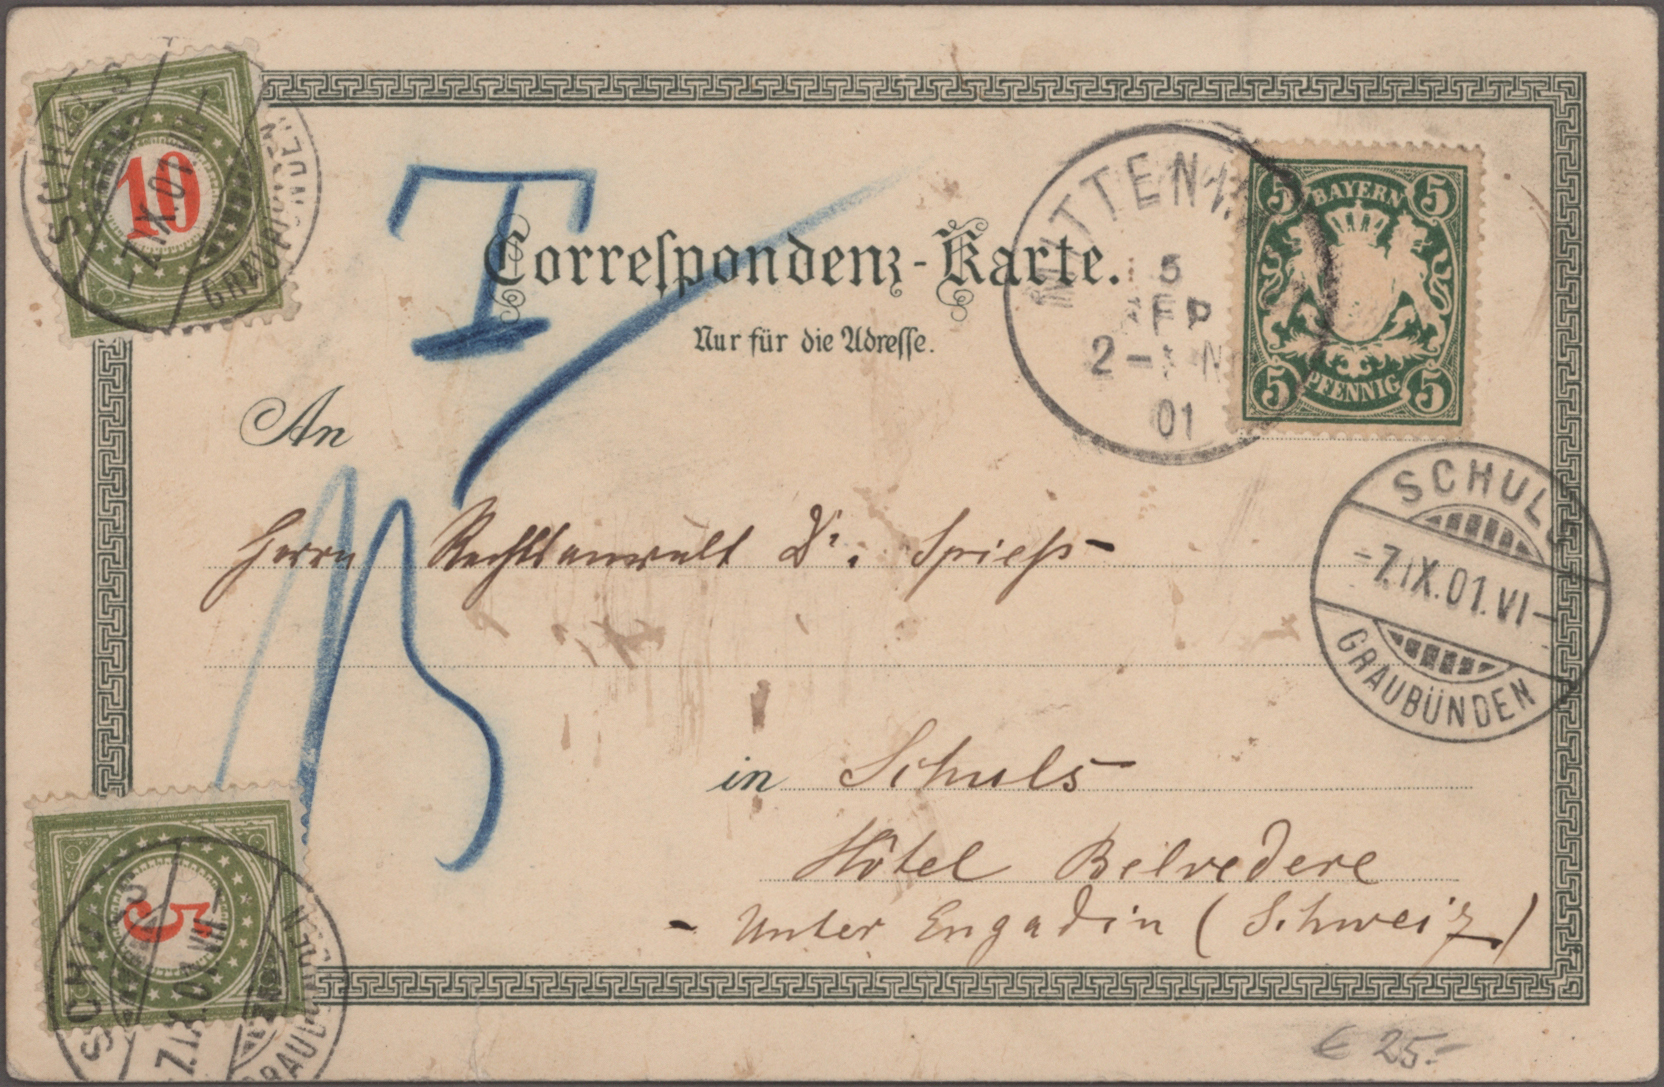 SCHULS
-7.IX.01.VII-
GRAUBÜNDEN
10
T
Correſpondenz-Karte.
Nur für die Adreſſe.
5 BAYERN 5
5 PFENNIG 5
MITTENW
5
SEP
2-3 N
01
An
Herrn Rechtsanwalt Dr. Spieß
15
SCHULS
-7.IX.01.VI-
GRAUBÜNDEN
in Schuls
Hôtel Belvedere
- Unter Engadin (Schweiz)
5
SCHULS
-7.IX.01.VII-
GRAUBÜNDEN
€ 25.-